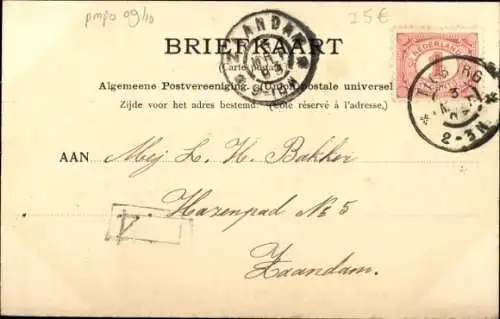 pmpo 09/10
25€
BRIEFKAART
(Carte postale.)
Algemeene Postvereeniging. (Union postale universelle.)
Zijde voor het adres bestemd. (Côté réservé à l'adresse.)
ZAANDAM
NEDERLAND
TILBURG
2-3N
AAN Mej L. H. Bakker
Hazenpad No 5
Zaandam.